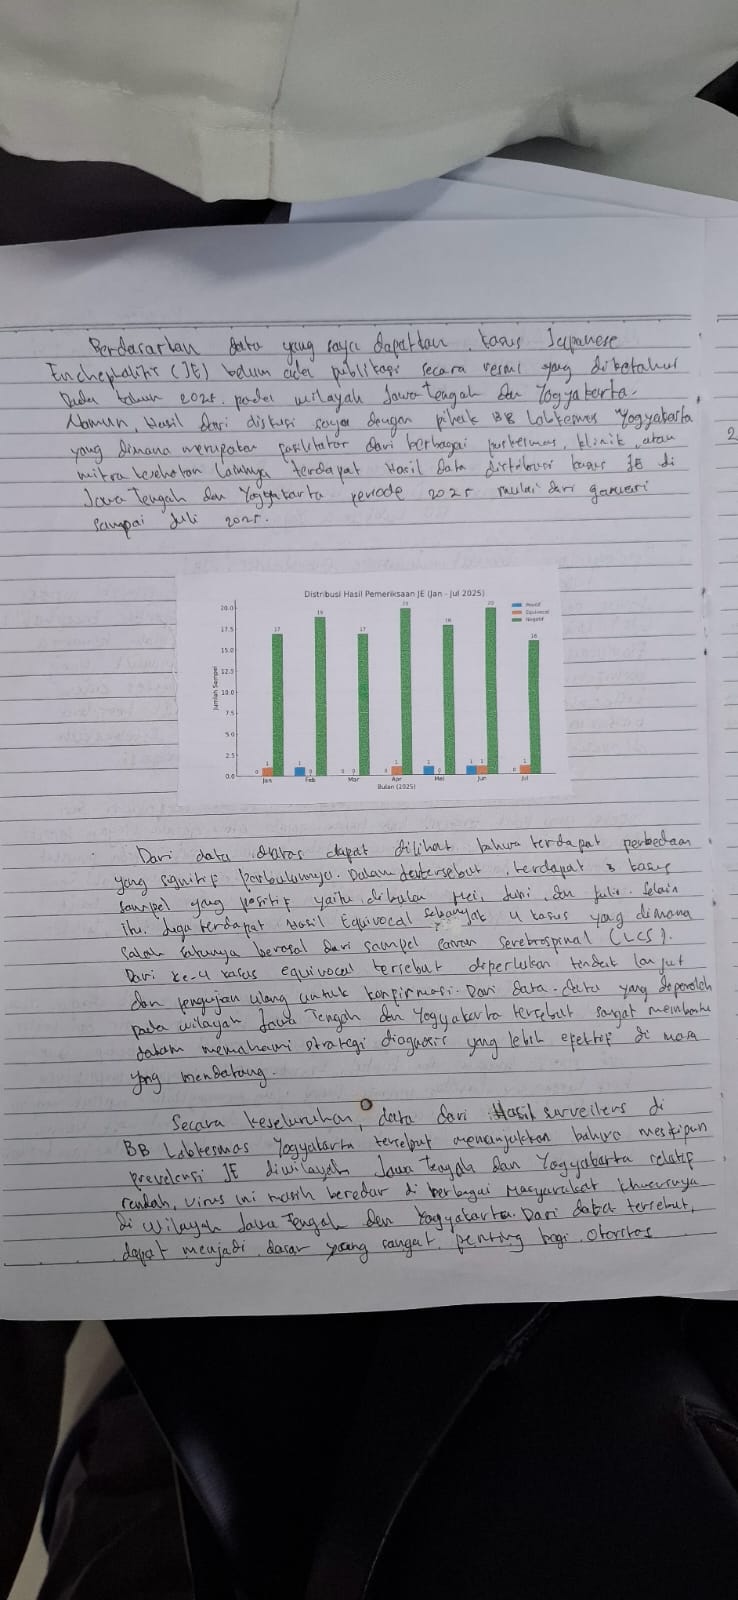 Berdasarkan data yang saya dapatkan, kasus Japanese
Enchephalitis (JE) belum ada publikasi secara resmi yang diketahui
pada tahun 2025, pada wilayah Jawa Tengah dan Yogyakarta.
Namun, Hasil dari diskusi saya dengan pihak BB Labkesmas Yogyakarta
yang dimana merupakan fasilitator dari berbagai puskesmas, klinik, atau
mitra kesehatan lainnya terdapat Hasil data distribusi kasus JE di
Jawa Tengah dan Yogyakarta periode 2025 mulai dari januari
sampai Juli 2025.
2
Distribusi Hasil Pemeriksaan JE (Jan - Jul 2025)
Positif
Equivocal
Negatif
Jumlah Sampel
20.0
17.5
15.0
12.5
10.0
7.5
5.0
2.5
0.0
0 1 17
1 0 19
0 0 17
0 1 20
1 0 18
1 1 20
0 1 16
Jan Feb Mar Apr Mei Jun Jul
Bulan (2025)
Dari data diatas dapat dilihat bahwa terdapat perbedaan
yang signifif perbulannya. Dalam tersebut, terdapat 3 kasus
sampel yang positif yaitu dibulan Mei, Juni, dan Juli. Selain
itu, Juga terdapat Hasil Equivocal sebanyak 4 kasus yang dimana
salah satunya berasal dari sampel cairan serebrospinal (LCS).
Dari ke-4 kasus equivocal tersebut diperlukan tindak lanjut
dan pengujian ulang untuk konfirmasi. Dari data-data yang diperoleh
pada wilayah Jawa Tengah dan Yogyakarta tersebut sangat membantu
dalam memahami strategi diagnosis yang lebih efektif di masa
yang mendatang.
Secara keseluruhan, data dari Hasil surveilens di
BB Labkesmas Yogyakarta tersebut menunjukkan bahwa meskipun
prevelensi JE diwilayah Jawa Tengah dan Yogyakarta relatif
rendah, virus ini masih beredar di berbagai Masyarakat khususnya
di wilayah Jawa Tengah dan Yogyakarta. Dari data tersebut,
dapat menjadi dasar yang sangat penting bagi otoritas